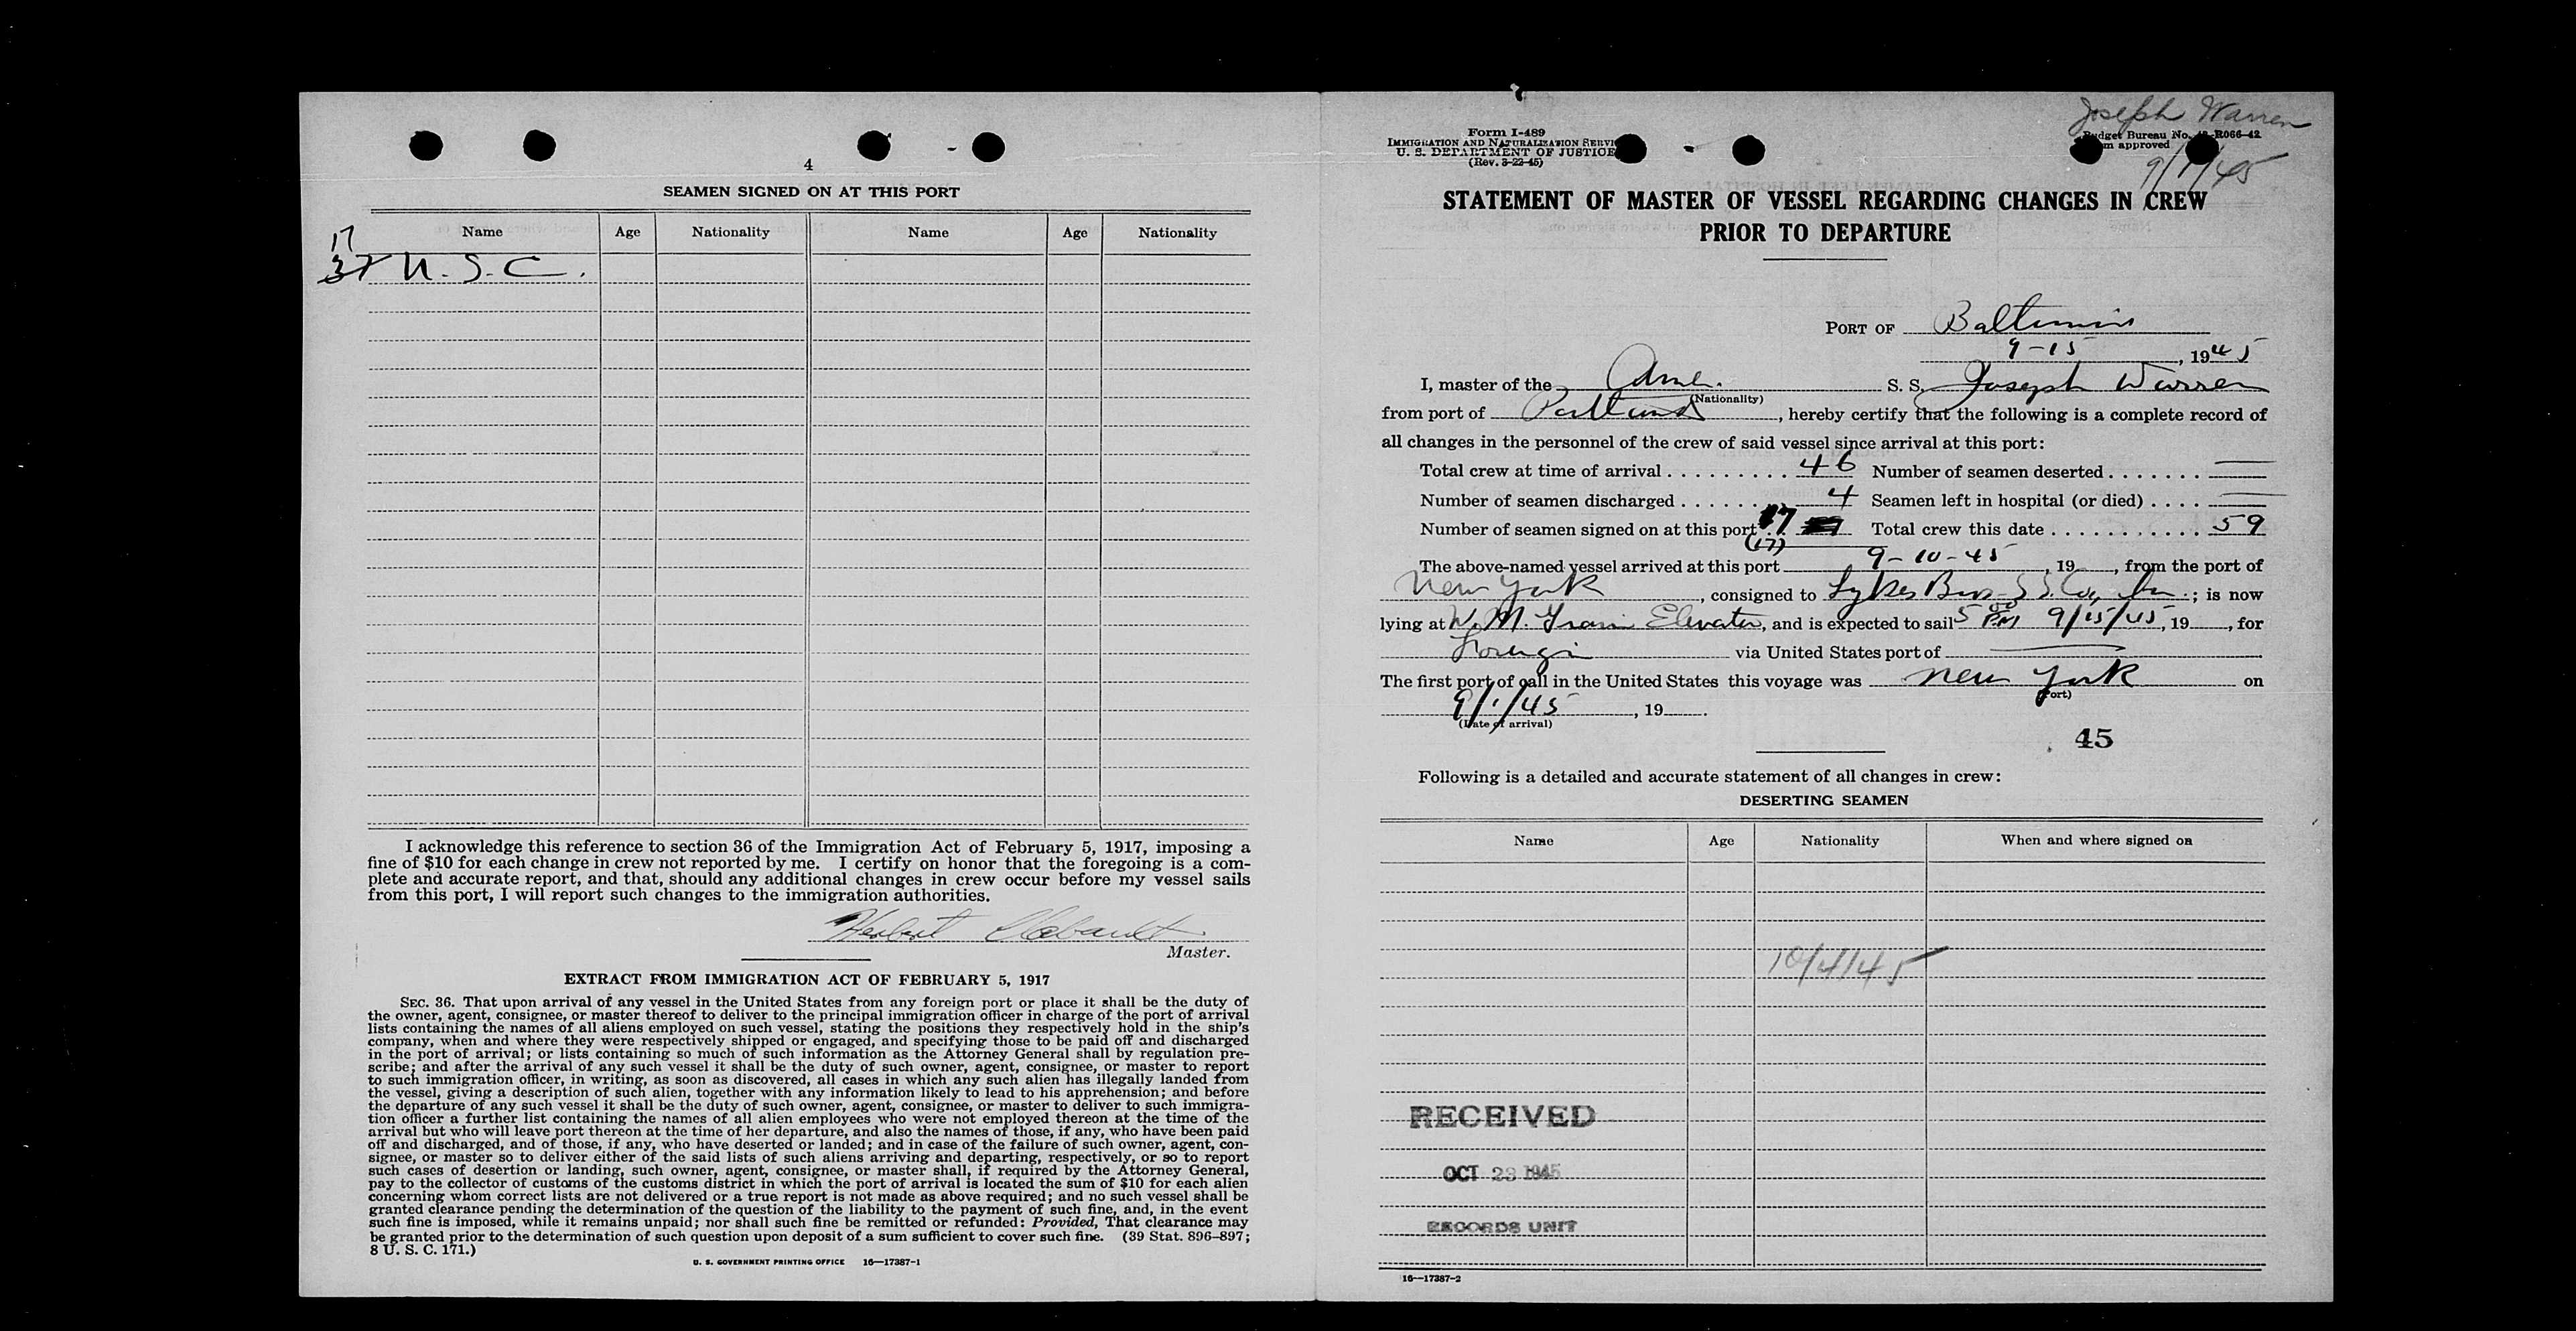 4
SEAMEN SIGNED ON AT THIS PORT
Name Age Nationality Name Age Nationality
17
37 U.S.C.
I acknowledge this reference to section 36 of the Immigration Act of February 5, 1917, imposing a
fine of $10 for each change in crew not reported by me. I certify on honor that the foregoing is a com-
plete and accurate report, and that, should any additional changes in crew occur before my vessel sails
from this port, I will report such changes to the immigration authorities.
Herbert
Master.
EXTRACT FROM IMMIGRATION ACT OF FEBRUARY 5, 1917
SEC. 36. That upon arrival of any vessel in the United States from any foreign port or place it shall be the duty of
the owner, agent, consignee, or master thereof to deliver to the principal immigration officer in charge of the port of arrival
lists containing the names of all aliens employed on such vessel, stating the positions they respectively hold in the ship's
company, when and where they were respectively shipped or engaged, and specifying those to be paid off and discharged
in the port of arrival; or lists containing so much of such information as the Attorney General shall by regulation pre-
scribe; and after the arrival of any such vessel it shall be the duty of such owner, agent, consignee, or master to report
to such immigration officer, in writing, as soon as discovered, all cases in which any such alien has illegally landed from
the vessel, giving a description of such alien, together with any information likely to lead to his apprehension; and before
the departure of any such vessel it shall be the duty of such owner, agent, consignee, or master to deliver to such immigra-
tion officer a further list containing the names of all alien employees who were not employed thereon at the time of the
arrival but who will leave port thereon at the time of her departure, and also the names of those, if any, who have been paid
off and discharged, and of those, if any, who have deserted or landed; and in case of the failure of such owner, agent, con-
signee, or master so to deliver either of the said lists of such aliens arriving and departing, respectively, or so to report
such cases of desertion or landing, such owner, agent, consignee, or master shall, if required by the Attorney General,
pay to the collector of customs of the customs district in which the port of arrival is located the sum of $10 for each alien
concerning whom correct lists are not delivered or a true report is not made as above required; and no such vessel shall be
granted clearance pending the determination of the question of the liability to the payment of such fine, and, in the event
such fine is imposed, while it remains unpaid; nor shall such fine be remitted or refunded: Provided, That clearance may
be granted prior to the determination of such question upon deposit of a sum sufficient to cover such fine. (39 Stat. 896–897;
8 U. S. C. 171.)
U. S. GOVERNMENT PRINTING OFFICE 16—17387-1
Joseph Warren
9/1/45
Form I-489
IMMIGRATION AND NATURALIZATION SERVI
U. S. DEPARTMENT OF JUSTICE
(Rev. 3-22-45)
Budget Bureau No. R066-42
m approved
STATEMENT OF MASTER OF VESSEL REGARDING CHANGES IN CREW
PRIOR TO DEPARTURE
PORT OF Baltimore
9-15, 1945
I, master of the Amer. S. S. Joseph Warren
(Nationality)
from port of Portland, hereby certify that the following is a complete record of
all changes in the personnel of the crew of said vessel since arrival at this port:
Total crew at time of arrival . . . . . . . . . . 46 Number of seamen deserted . . . . . . . —
Number of seamen discharged . . . . . . . 4 Seamen left in hospital (or died) . . . . —
Number of seamen signed on at this port 17 Total crew this date . . . . . . . . . . . . 59
(17)
The above-named vessel arrived at this port 9-10-45, 19, from the port of
New York, consigned to Lykes Bros S.S. Co., Inc.; is now
lying at W. M. Grain Elevator, and is expected to sail 5 00 PM 9/15/45, 19, for
Foreign via United States port of —
The first port of call in the United States this voyage was New York on
(Port)
9/1/45, 19.
(Date of arrival)
45
Following is a detailed and accurate statement of all changes in crew:
DESERTING SEAMEN
Name Age Nationality When and where signed on
10/4/45
RECEIVED
OCT 23 1945
RECORDS UNIT
16—17387-2